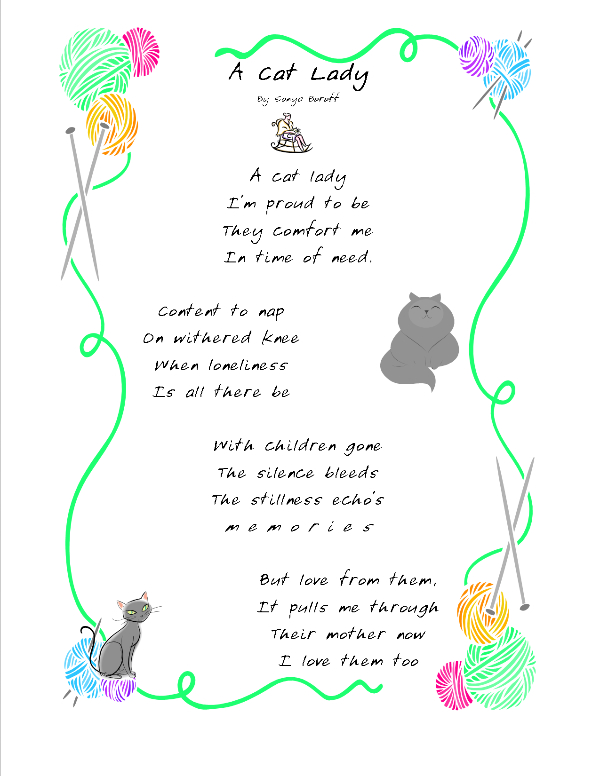 A Cat Lady
By Sonya Burott
A cat lady
I'm proud to be
They comfort me
In time of need.
Content to nap
On withered knee
When loneliness
Is all there be
With children gone
The silence bleeds
The stillness echo's
m e m o r i e s
But love from them,
It pulls me through
Their mother now
I love them too